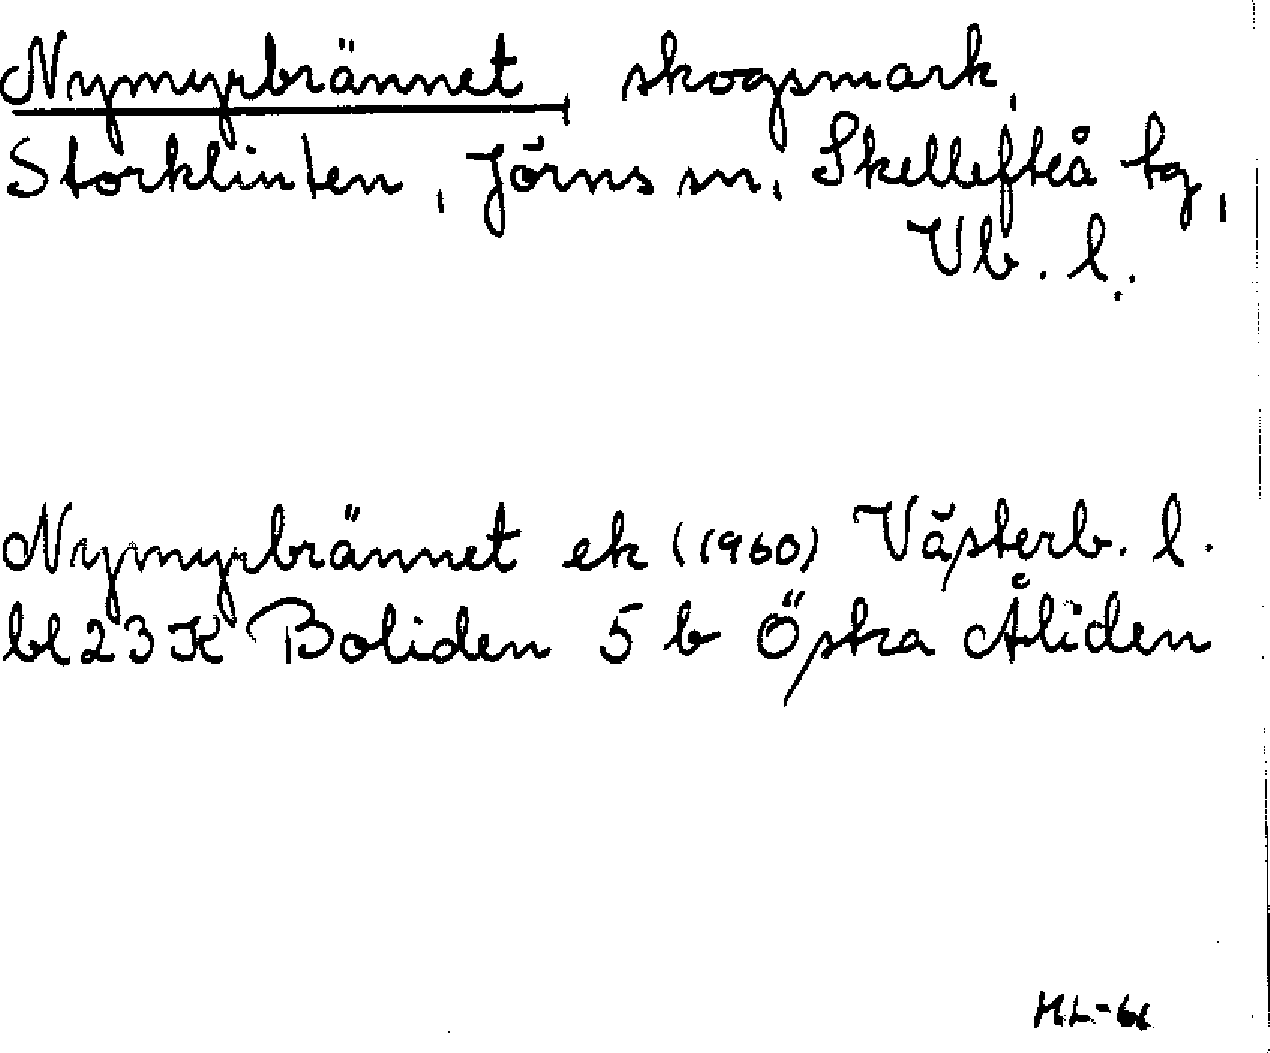 Nymyrbrännet, skogsmark,
Storklinten, Jörns sn, Skellefteå tg,
Vb. l.
Nymyrbrännet ek (1960) Västerb. l.
bl 23 K Boliden 5 b Östra Åliden
HL-61